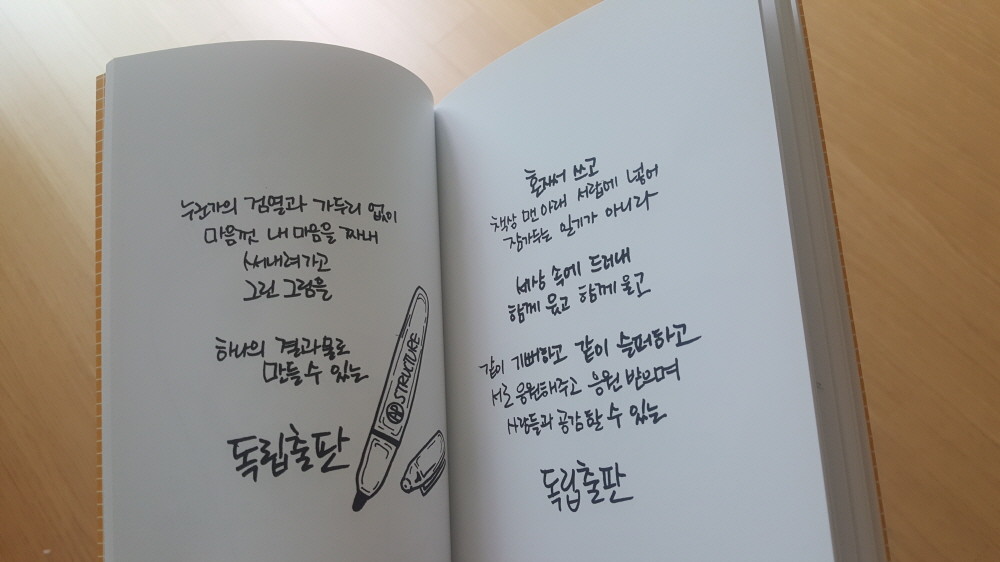 누군가의 검열과 가두리 없이
마음껏 내 마음을 짜내
써내려가고
그린 그림을
하나의 결과물로
만들 수 있는
독립출판
STRUCTURE
혼자서 쓰고
책상 맨 아래 서랍에 넣어
잠가두는 일기가 아니라
세상 속에 드러내
함께 웃고 함께 울고
같이 기뻐하고 같이 슬퍼하고
서로 응원해주고 응원 받으며
사람들과 공감할 수 있는
독립출판